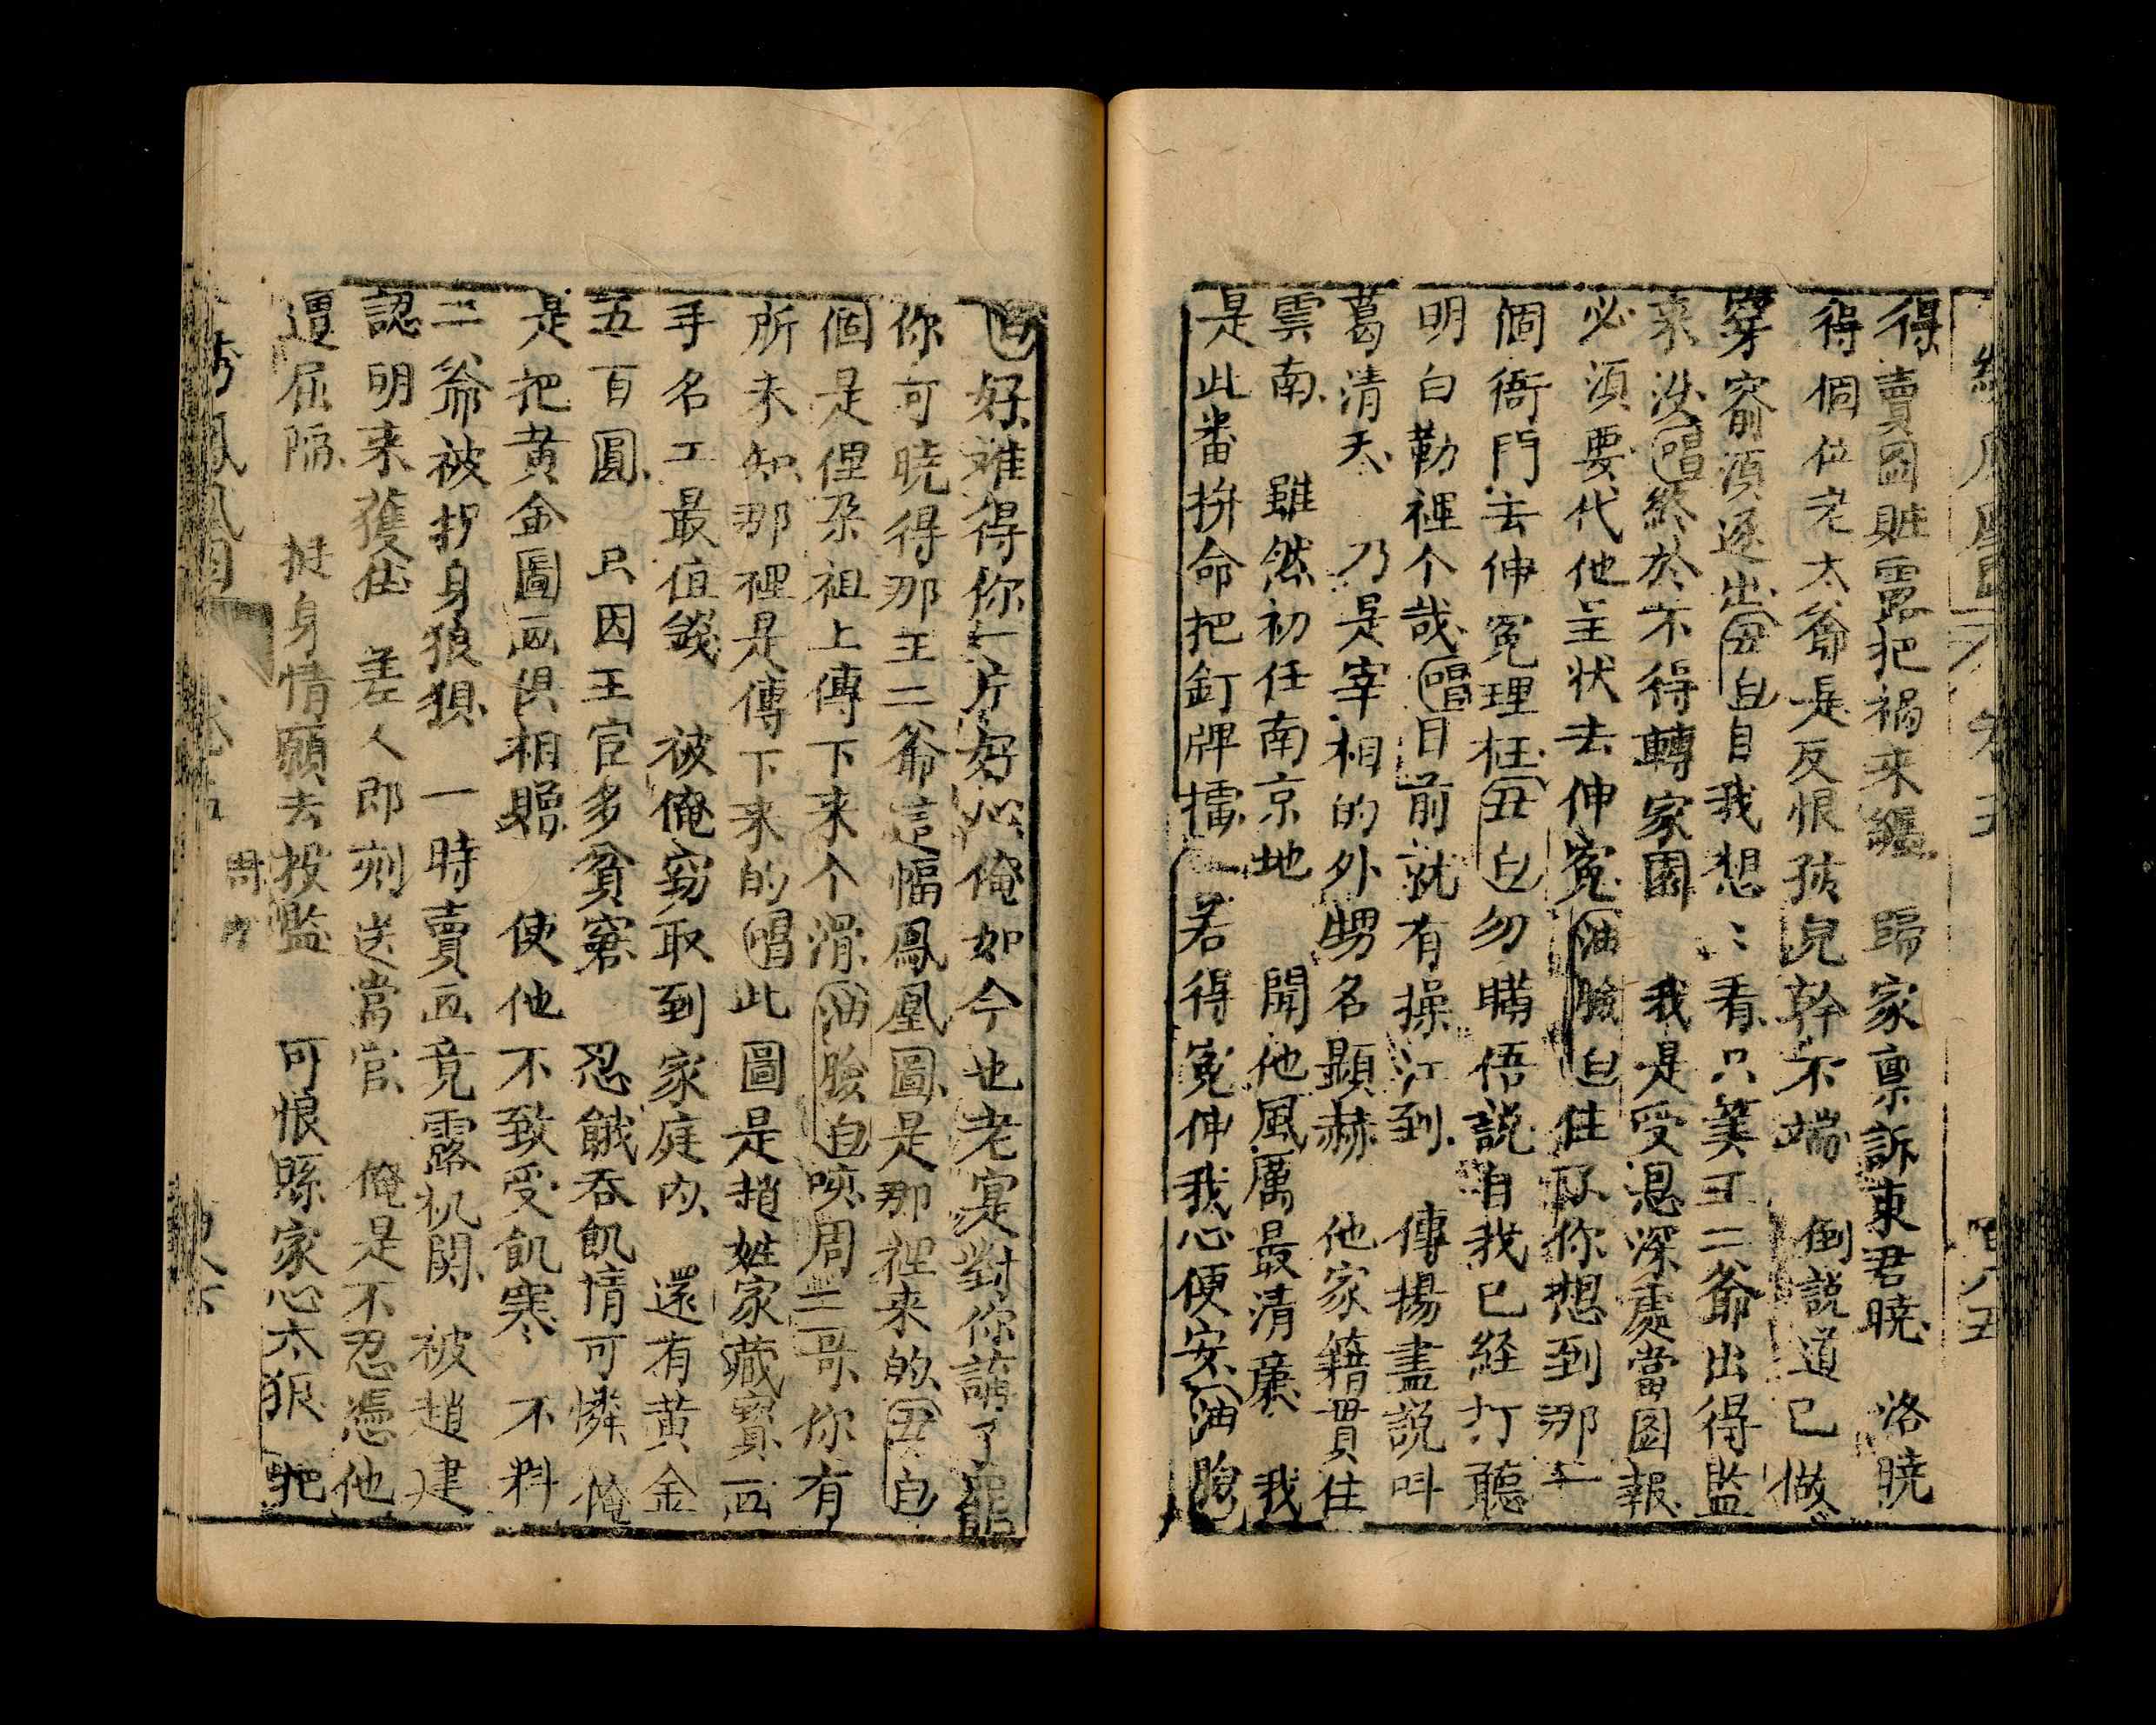 得賣圖賍露把禍來纏 歸家禀訴東君曉 洛曉
得個位老太爺是反恨孩兒幹不端 倒說道已做
穿窬須逐出丑白自我想:看只筭王二爺出得監
來沒唱終於不得轉家園 我是受恩深處當圖報
必須要代他主狀去伸寃油臉白住了你想到那一
個衙門去伸冤理枉丑白勿瞞悟說自我已経打聽
明白勒裡个哉唱目前就有操江到 傳揚盡說叫
葛清天 乃是宰相的外甥名顯赫 他家籍貫住
雲南 雖然初任南京地 聞他風厲最清廉 我
是此番拚命把釘牌擂 若得寃伸我心便安油臉
白好難得你一片好心俺如今也老寔對你講了罷
你可曉得那王二爺這幅鳳凰圖是那裡来的丑白
個是俚朶祖上傳下来个滑油臉白咦周二哥你有
所未知那裡是傳下来的唱此圖是趙姓家藏寳 
手名工最值錢 被俺窃取到家庭內 還有黄金
五百圓 只因王宦多貧窘 忍餓吞飢情可憐 俺
是把黄金圖画俱相贈 使他不致受飢寒 不料
二爺被扐身狼狽 一時賣画竟露机関 被趙建
認明来獲住 差人即刻送當官 俺是不忍憑他
遭屈陷 挺身情願去投監 可恨縣家心太狠 把
繡鳳凰圖 卷五